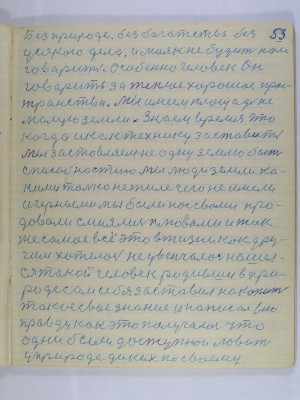 без природе. без богатства без 53
усякого дела. и мая не будит нам
говарить. Особенно человек Он
говарить за теплое хорошое про-
транства. Мы имеем площадь не
малую земли. Знаем время что
когда и кск технику заставить
мы заставляем не одну землю быть
способностию мы люди земли ка-
ними только не жиле чего не имели
и чернымы мы были носвами про-
довали смиялись плювали и так
же самое всё это в жизни как дру-
гим хотелось не увенчалос нашол-
ся такой человек родивши в при-
роде сам себя заставил накопит
такое свое знание и написал слю
правду как это получалос что
одни были доступной ловить
у природе диких по своему